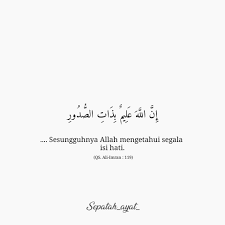 إِنَّ اللَّهَ عَلِيمٌ بِذَاتِ الصُّدُورِ
.... Sesungguhnya Allah mengetahui segala
isi hati.
(QS. Ali-Imran : 119)
Sepatah_ayat_